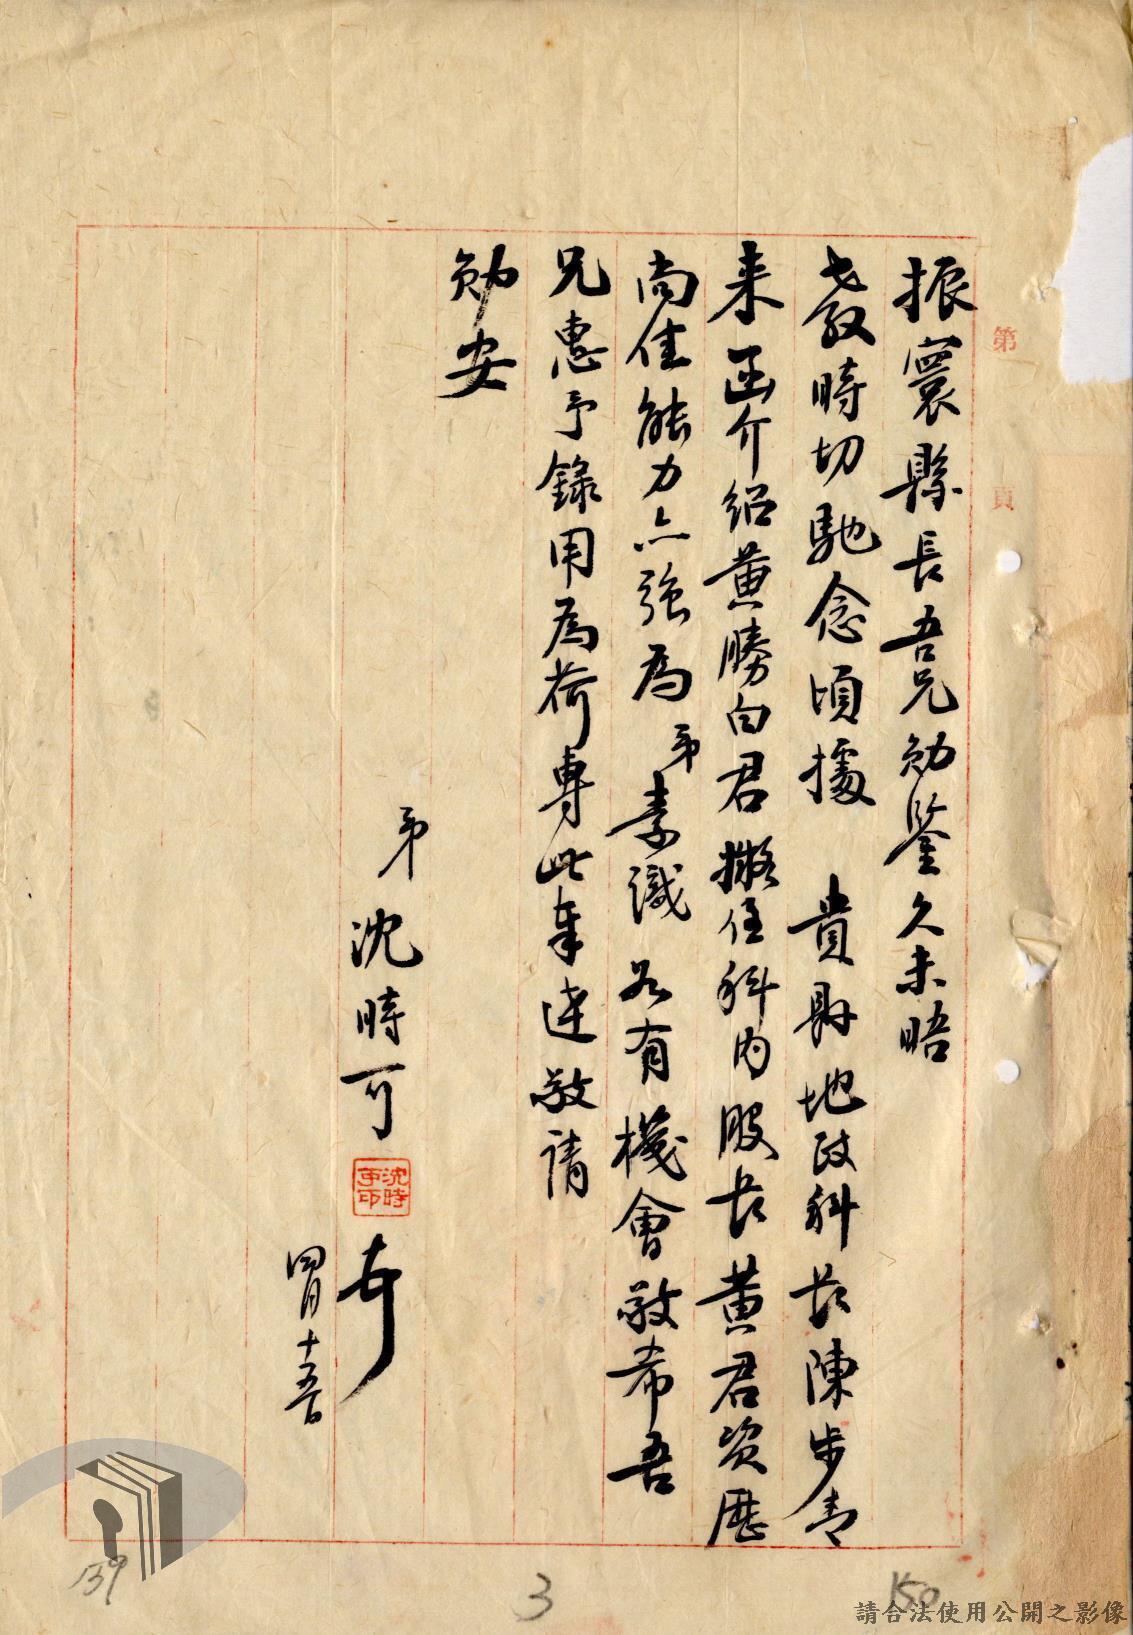 第 頁
振寰縣長吾兄勛鑒久未晤
教時切馳念頃據 貴縣地政科長陳步青
来函介紹黃勝白君擬任科內股長黃君資歷
尚佳能力亦強為弟素識如有機會敬希吾
兄惠予錄用為荷專此奉達敬請
勛安
弟 沈時可
沈時可印
四月十五日
139
3
150
請合法使用公開之影像